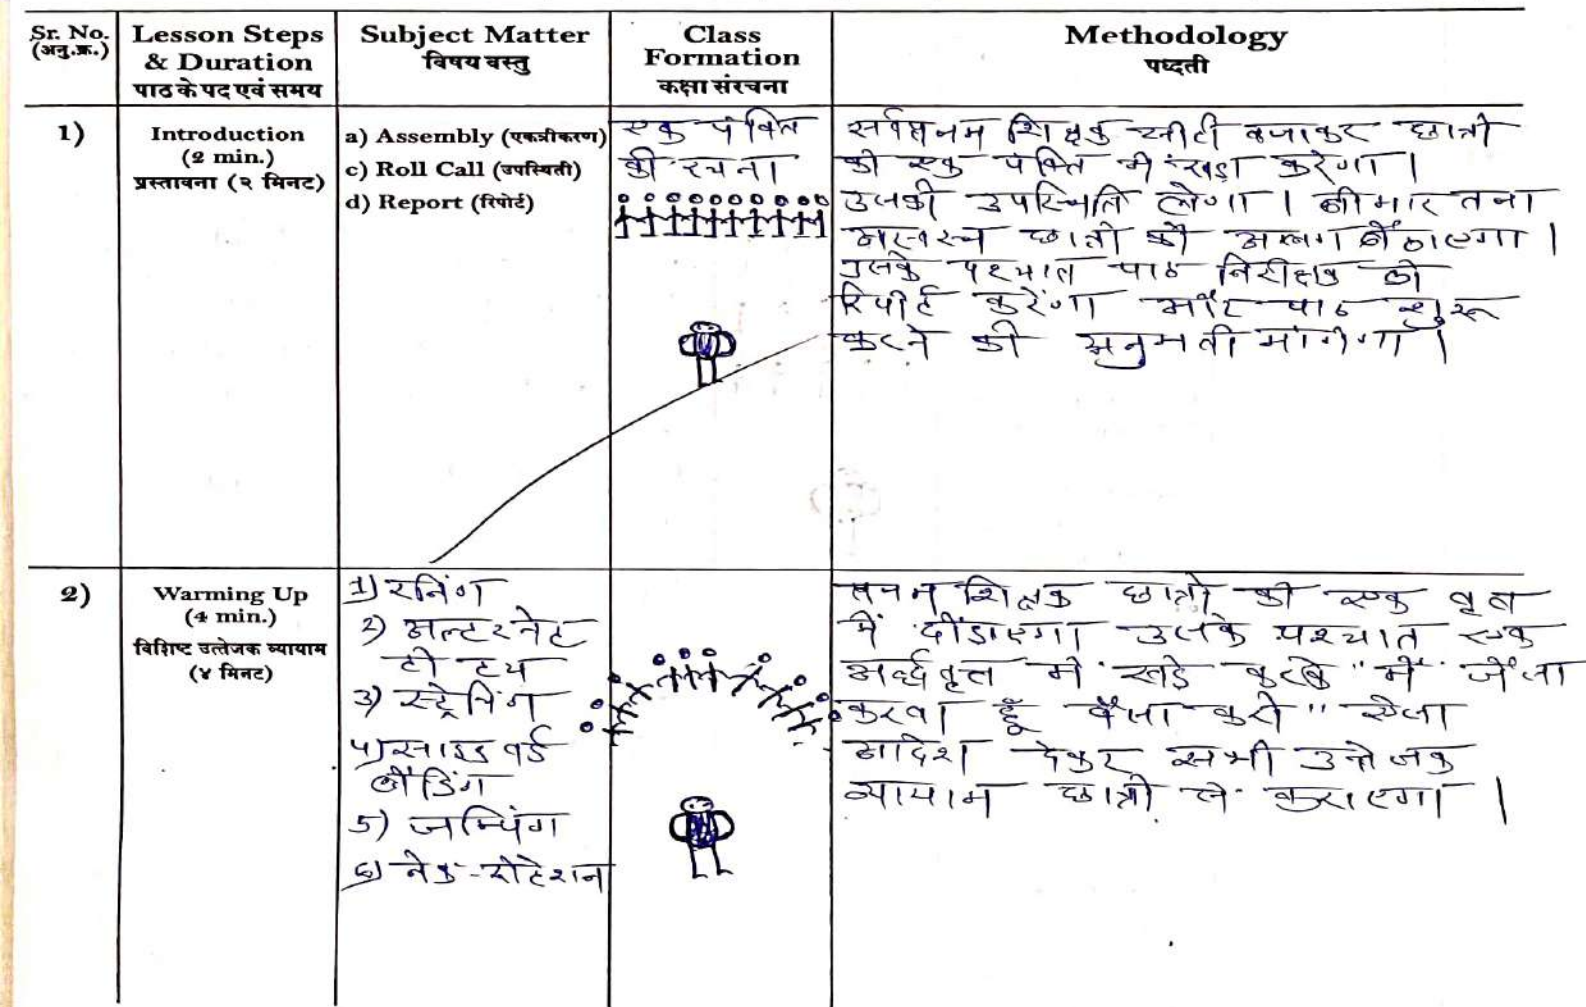 Sr. No.
(अनु.क्र.)
Lesson Steps
& Duration
पाठ के पद एवं समय
Subject Matter
विषय वस्तु
Class
Formation
कक्षा संरचना
Methodology
पध्दती
1)
Introduction
(2 min.)
प्रस्तावना (२ मिनट)
a) Assembly (एकत्रीकरण)
c) Roll Call (उपस्थिती)
d) Report (रिपोर्ट)
एक पंक्ति
की रचना
सर्वप्रथम शिक्षक सीटी बजाकर छात्रो
को एक पंक्ति में खड़ा करेगा।
उनकी उपस्थिति लेगा। बीमार तथा
अस्वस्थ छात्रो को अलग बैठाएगा।
उसके पश्चात पाठ निरीक्षक को
रिपोर्ट करेंगा और पाठ शुरू
करने की अनुमती मांगेगा।
2)
Warming Up
(4 min.)
विशिष्ट उत्तेजक व्यायाम
(४ मिनट)
1) रनिंग
2) अल्टरनेट
टो टच
3) स्ट्रेचिंग
4) साइड वर्ड
बेंडिंग
5) जम्पिंग
6) नेक-रोटेशन
प्रथम शिक्षक छात्रो को एक वृत
में दौडाएगा उसके पश्चात एक
अर्द्धवृत्त में खड़े करके "में जैसा
करता हूँ वैसा करो" ऐसा
आदेश देकर सभी उत्तेजक
व्यायाम छात्रो से कराएगा।